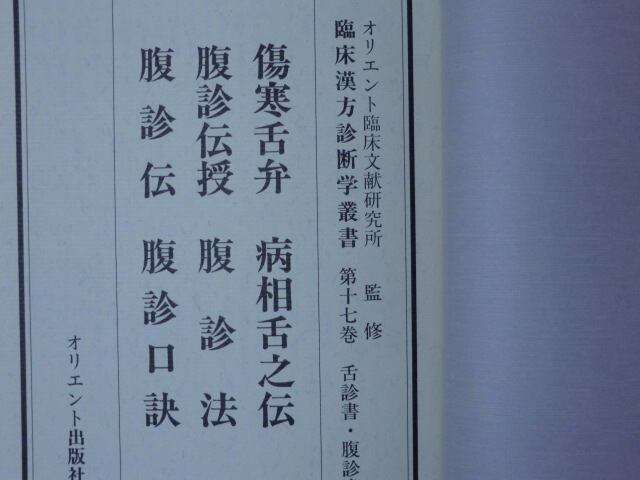 オリエント臨床文献研究所 監修
臨床漢方診断学叢書 第十七巻 舌診書・腹診
傷寒舌弁 病相舌之伝
腹診伝授 腹診法
腹診伝 腹診口訣
オリエント出版社